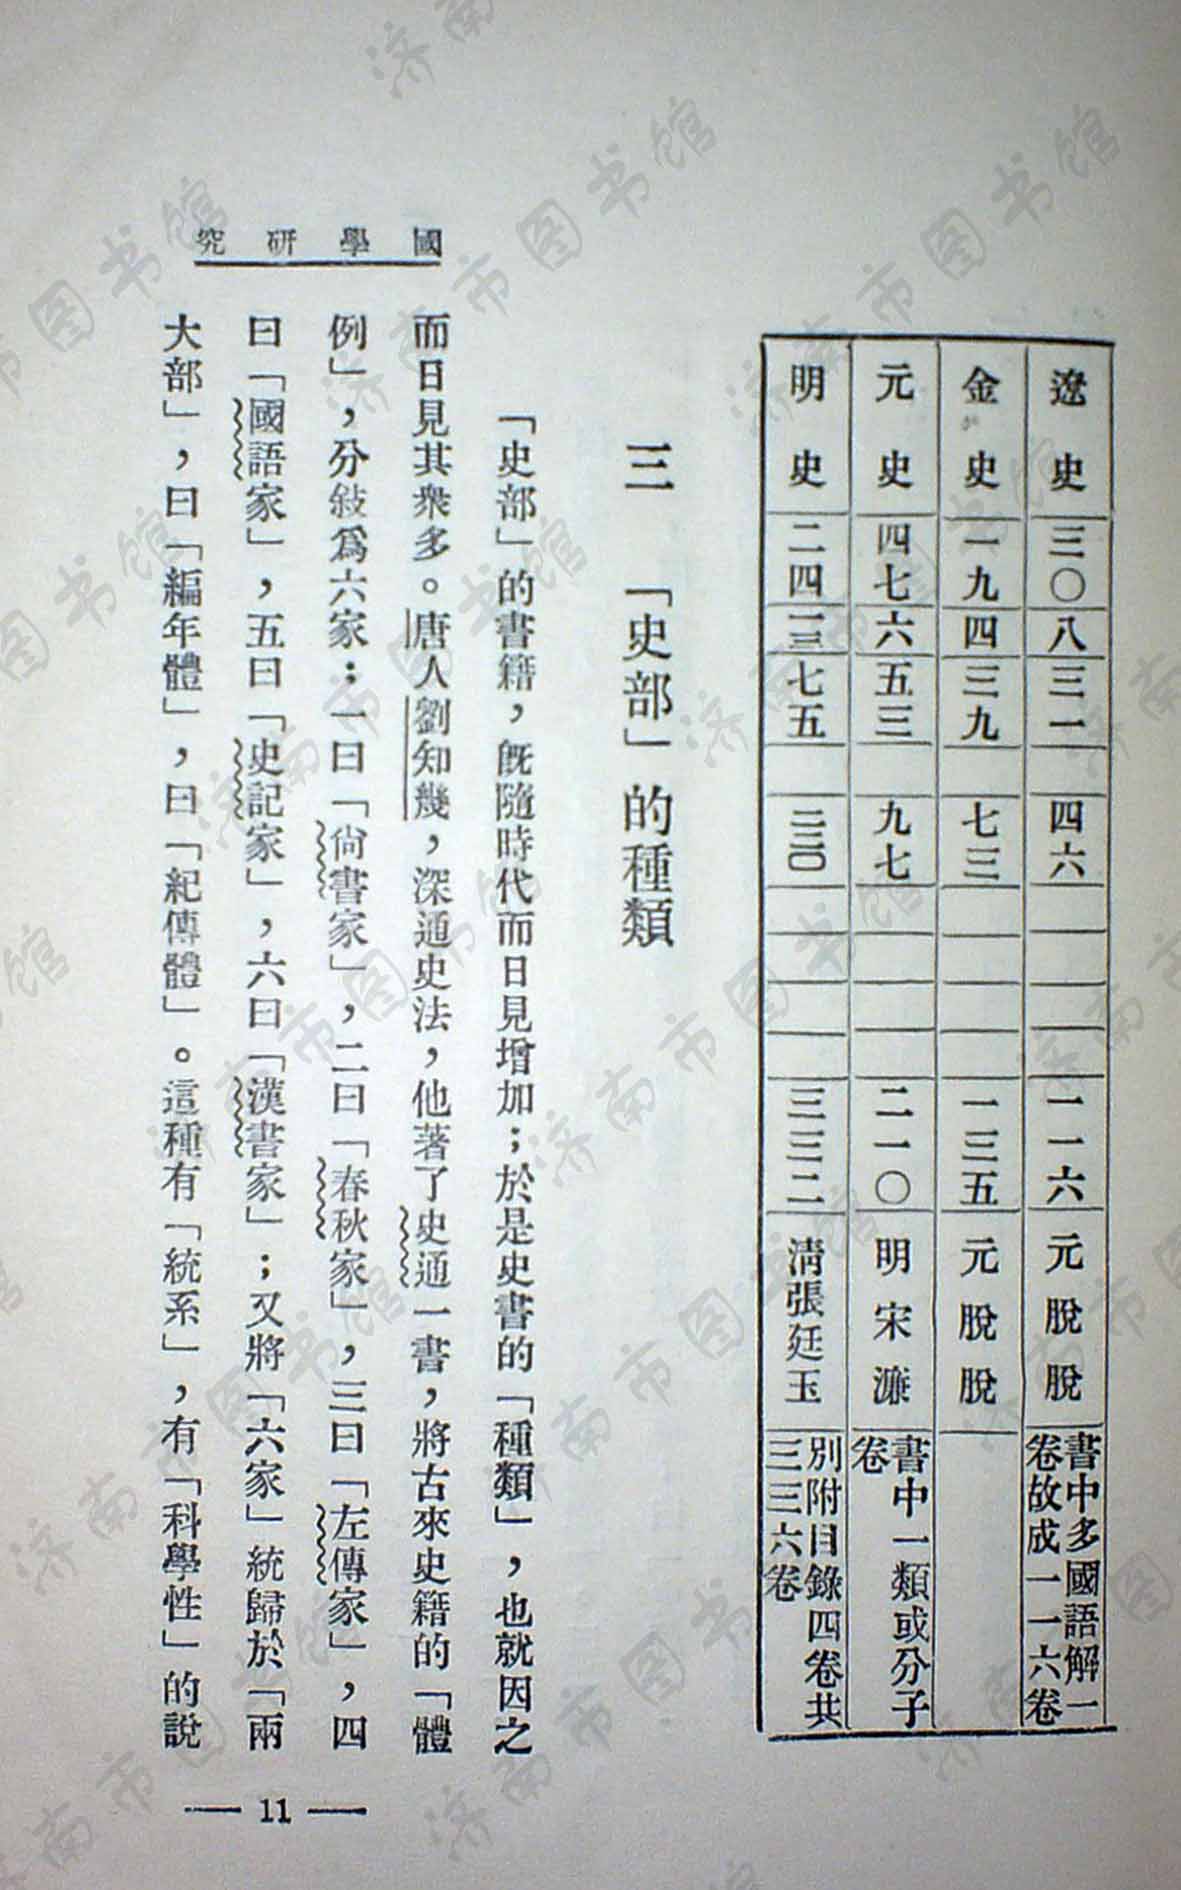 國學研究
遼史 三〇 八 三一 四六 一一六 元脫脫 書中多國語解一
卷故成一一六卷
金史 一九 四 三九 七三 一三五 元脫脫
元史 四七 六 五三 九七 二一〇 明宋濂 書中一類或分子
卷
明史 二四 一三 七五 二二〇 三三二 清張廷玉 別附目錄四卷共
三三六卷
三 「史部」的種類
「史部」的書籍，既隨時代而日見增加；於是史書的「種類」，也就因之
而日見其衆多。唐人劉知幾，深通史法，他著了史通一書，將古來史籍的「體
例」，分敍爲六家；一曰「尙書家」，二曰「春秋家」，三曰「左傳家」，四
曰「國語家」，五曰「史記家」，六曰「漢書家」；又將「六家」統歸於「兩
大部」，曰「編年體」，曰「紀傳體」。這種有「統系」，有「科學性」的說
— 11 —
济南市图书馆